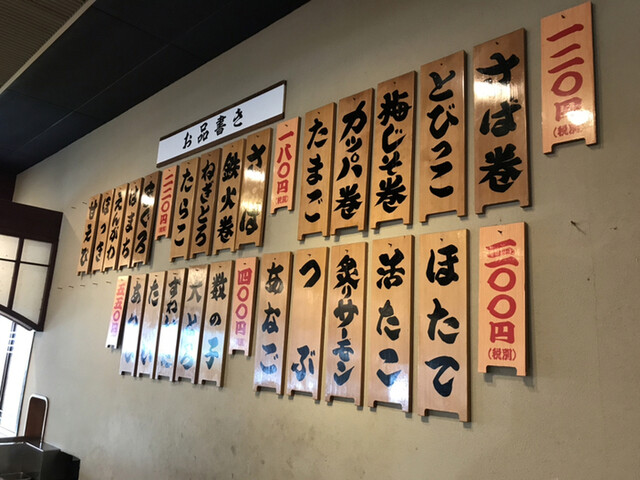 お品書き
一二〇円
(税別)
さば巻
とびっこ
梅じそ巻
カッパ巻
たまご
一八〇円
(税別)
さば
鉄火巻
ねぎとろ
たらこ
二二〇円
まぐろ
はまち
えんがわ
ほっき
甘えび
三〇〇円
(税別)
ほたて
活たこ
炙りサーモン
つぶ
あなご
四〇〇円
数の子
大とろ
五五〇円